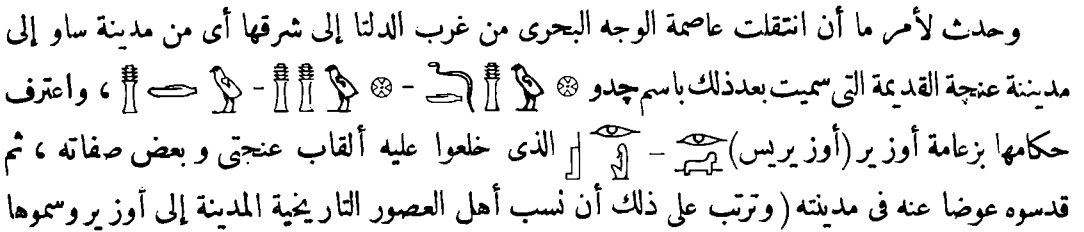 وحدث لأمر ما أن انتقلت عاصمة الوجه البحرى من غرب الدلتا إلى شرقها أى من مدينة ساو إلى
مديننة عنچة القديمة التى سميت بعد ذلك باسم چدو ، واعترف
حكامها بزعامة أوزير (أوزيريس) الذى خلعوا عليه ألقاب عنجتى وبعض صفاته ، ثم
قدسوه عوضا عنه فى مدينته (وترتب على ذلك أن نسب أهل العصور التاريخية المدينة إلى أوزير وسموها